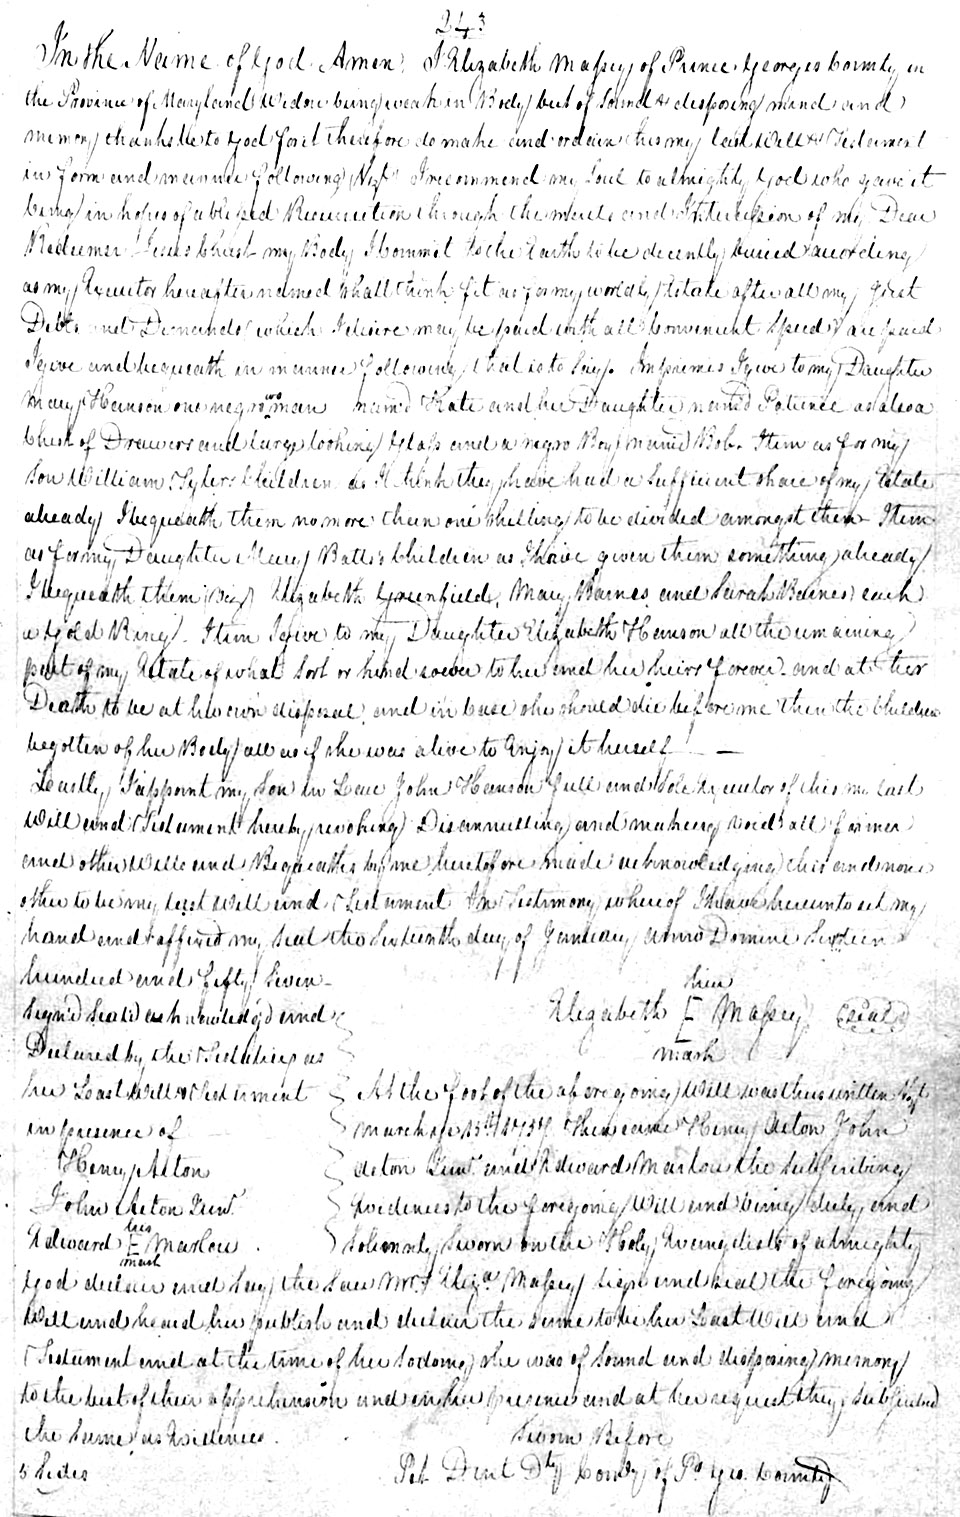 243
In the Name of God Amen, I Elizabeth Massey of Prince Georges County in
the Province of Maryland Widow being weak in Body but of Sound & disposing mind and
memory thanks be to God for it therefore do make and ordain this my last Will & Testament
in form and manner following Vizt. I recommend my Soul to almighty God who gave it
being in hopes of a blessed Resurrection through the merits and Intercession of my Dear
Redeemer Jesus Christ my Body I Commit to the Earth to be decently buried according
as my Executor hereafter named shall think fit as for my worldly Estate after all my Just
Debts and Demands which I desire may be paid with all Convenient Speed are paid
I give and bequeath in manner following that is to Say. Imprimis I give to my Daughter
Mary Hanson one negro woman named Kate and her Daughter named Patience as also a
Chest of Drawers and large looking Glass and a negro Boy named Bob. Item as for my
Son William Tylers Children as I think they have had a Sufficient share of my Estate
already I bequeath them no more than one shilling to be divided amongst them Item
as for my Daughter Mary Batts Children as I have given them something already
I bequeath them Elizabeth Greenfield, Mary Barnes and Sarah Barnes each
a Gold Ring. Item I give to my Daughter Elizabeth Hanson all the remaining
part of my Estate of what Sort or kind soever to her and her heirs forever and at her
Death to be at her own disposal and in Case she should die before me then the Children
begotten of her Body all as if she was alive to Enjoy it herself
Lastly I appoint my Son in Law John Hanson full and Sole Executor of this my last
Will and Testament hereby revoking Disannulling and making void all former
and other Wills and Bequeaths by me heretofore made acknowledging this and none
other to be my last Will and Testament In Testimony whereof I have hereunto set my
hand and affixed my Seal the Sixteenth day of January Anno Domini Sixteen
hundred and fifty Seven
Sign'd Seal'd acknowledg'd and
Declared by the Testatrix as
her Last Will & Testament
in presence of
Henry Acton
John Acton Junr.
his
Edward E Marlow
mark
her
Elizabeth E Massey (Seal)
mark
At the foot of the aforegoing Will was thus written Vizt
March 15th 1757 Then came Henry Acton John
Acton Junr. and Edward Marlow the Subscribing
Evidences to the foregoing Will and being duly and
Solemnly Sworn on the Holy Evangelists of almighty
God declare and Say they saw Mrs. Elizar. Massey Sign and Seal the foregoing
Will and heard her publish and declare the Same to be her Last Will and
Testament and at the time of her so doing she was of Sound and disposing memory
to the best of their apprehension and in her presence and at her request they subscribed
the Same as Evidences. Sworn Before
5 Sides Pet. Dent Dty Comry of Po Geo. County